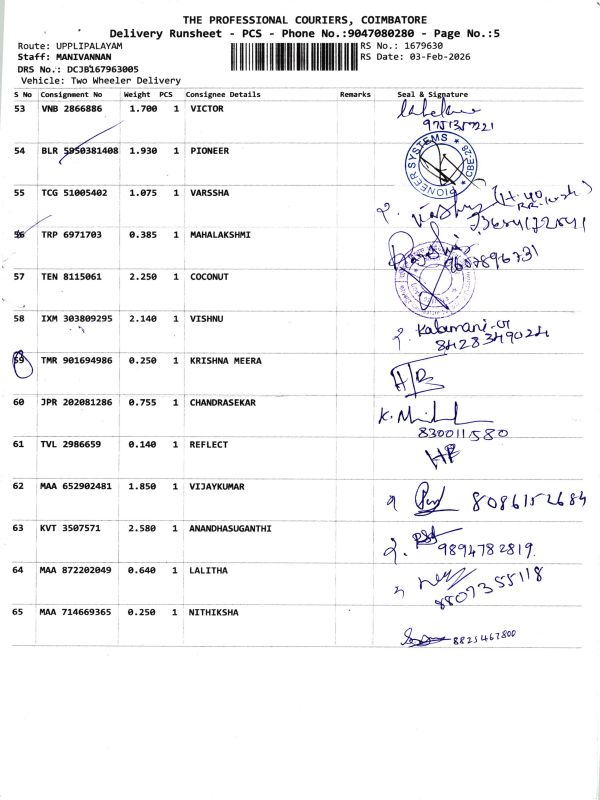 THE PROFESSIONAL COURIERS, COIMBATORE
Delivery Runsheet - PCS - Phone No.:9047080280 - Page No.:5
Route: UPPLIPALAYAM RS No.: 1679630
Staff: MANIVANNAN RS Date: 03-Feb-2026
DRS No.: DCJB167963005
Vehicle: Two Wheeler Delivery
S No Consignment No Weight PCS Consignee Details Remarks Seal & Signature
53 VNB 2866886 1.700 1 VICTOR
54 BLR 5950381408 1.930 1 PIONEER
PIONEER SYSTEMS * CBE-28 *
55 TCG 51005402 1.075 1 VARSSHA
56 TRP 6971703 0.385 1 MAHALAKSHMI
9607896731
57 TEN 8115061 2.250 1 COCONUT
58 IXM 303809295 2.140 1 VISHNU
Kalamani.G
8428349024
59 TMR 901694986 0.250 1 KRISHNA MEERA
H/B
60 JPR 202081286 0.755 1 CHANDRASEKAR
830011580
61 TVL 2986659 0.140 1 REFLECT
62 MAA 652902481 1.850 1 VIJAYKUMAR
8086152684
63 KVT 3507571 2.580 1 ANANDHASUGANTHI
9894782819.
64 MAA 872202049 0.640 1 LALITHA
8807355118
65 MAA 714669365 0.250 1 NITHIKSHA
8825467800